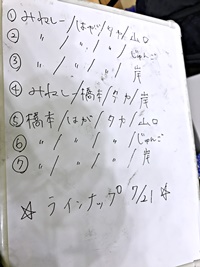 ① みねしー/はが/タカ/山口
② 〃 / 〃 / 〃 / じゅんご
③ 〃 / 〃 / 〃 / 岸
④ みねしー/橋本/タカ/岸
⑤ 橋本/はが/タカ/山口
⑥ 〃 / 〃 / 〃 / じゅんご
⑦ 〃 / 〃 / 〃 / 岸
☆ ラインナップ 7/21 ☆